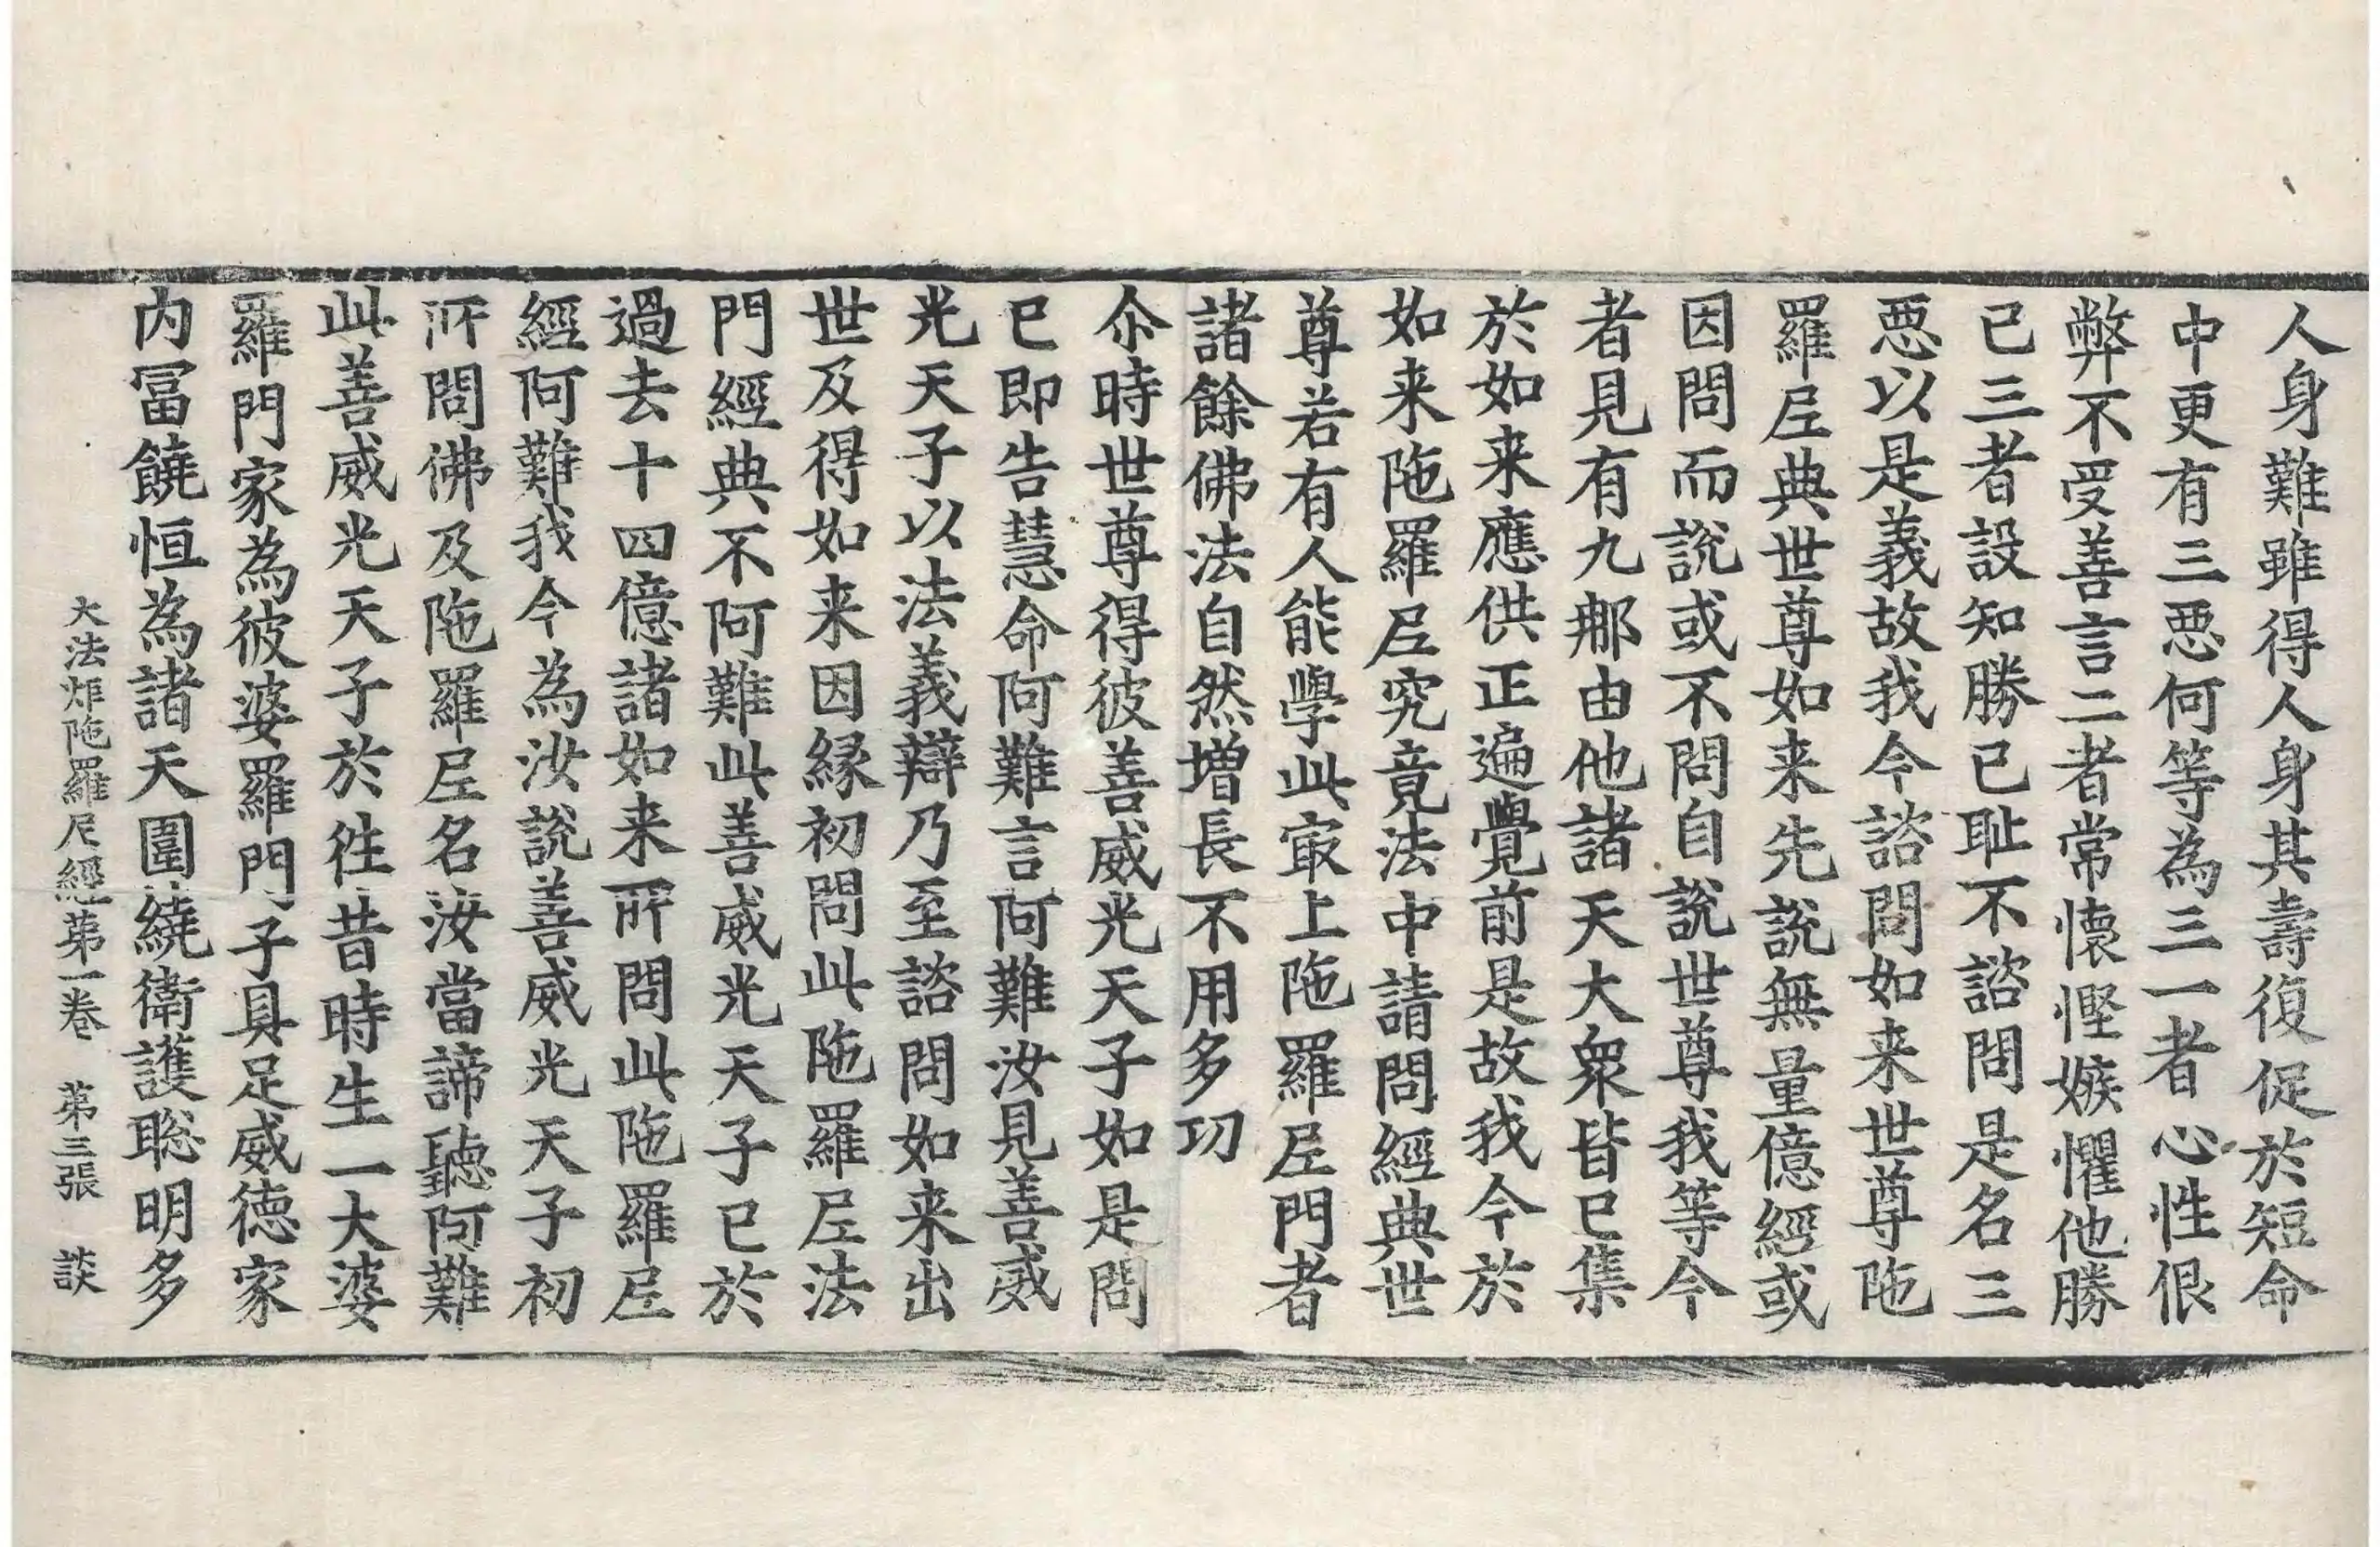 人身難雖得人身其壽復促於短命
中更有三惡何等為三一者心性佷
弊不受善言二者常懷慳嫉懼他勝
已三者設知勝已耻不諮問是名三
惡以是義故我今諮問如来世尊陁
羅𡰱典世尊如来先說無量億經或
因問而說或不問自說世尊我等今
者見有九𨙻由他諸天大衆皆已集
於如来應供正遍覺前是故我今於
如来陁羅𡰱究竟法中請問經典世
尊若有人能學此㝡上陁羅𡰱門者
諸餘佛法自然增長不用多功
尒時世尊得彼善威光天子如是問
已即告慧命阿難言阿難汝見善威
光天子以法義辯乃至諮問如来出
世及得如来因緣初問此陁羅𡰱法
門經典不阿難此善威光天子已於
過去十四億諸如来所問此陁羅𡰱
經阿難我今為汝說善威光天子初
所問佛及陁羅𡰱名汝當諦聽阿難
此善威光天子於徃昔時生一大婆
羅門家為彼婆羅門子具足威德家
内冨饒恒為諸天圍繞衛護聡明多
大法炬陁羅尼經第一卷　第三張　談